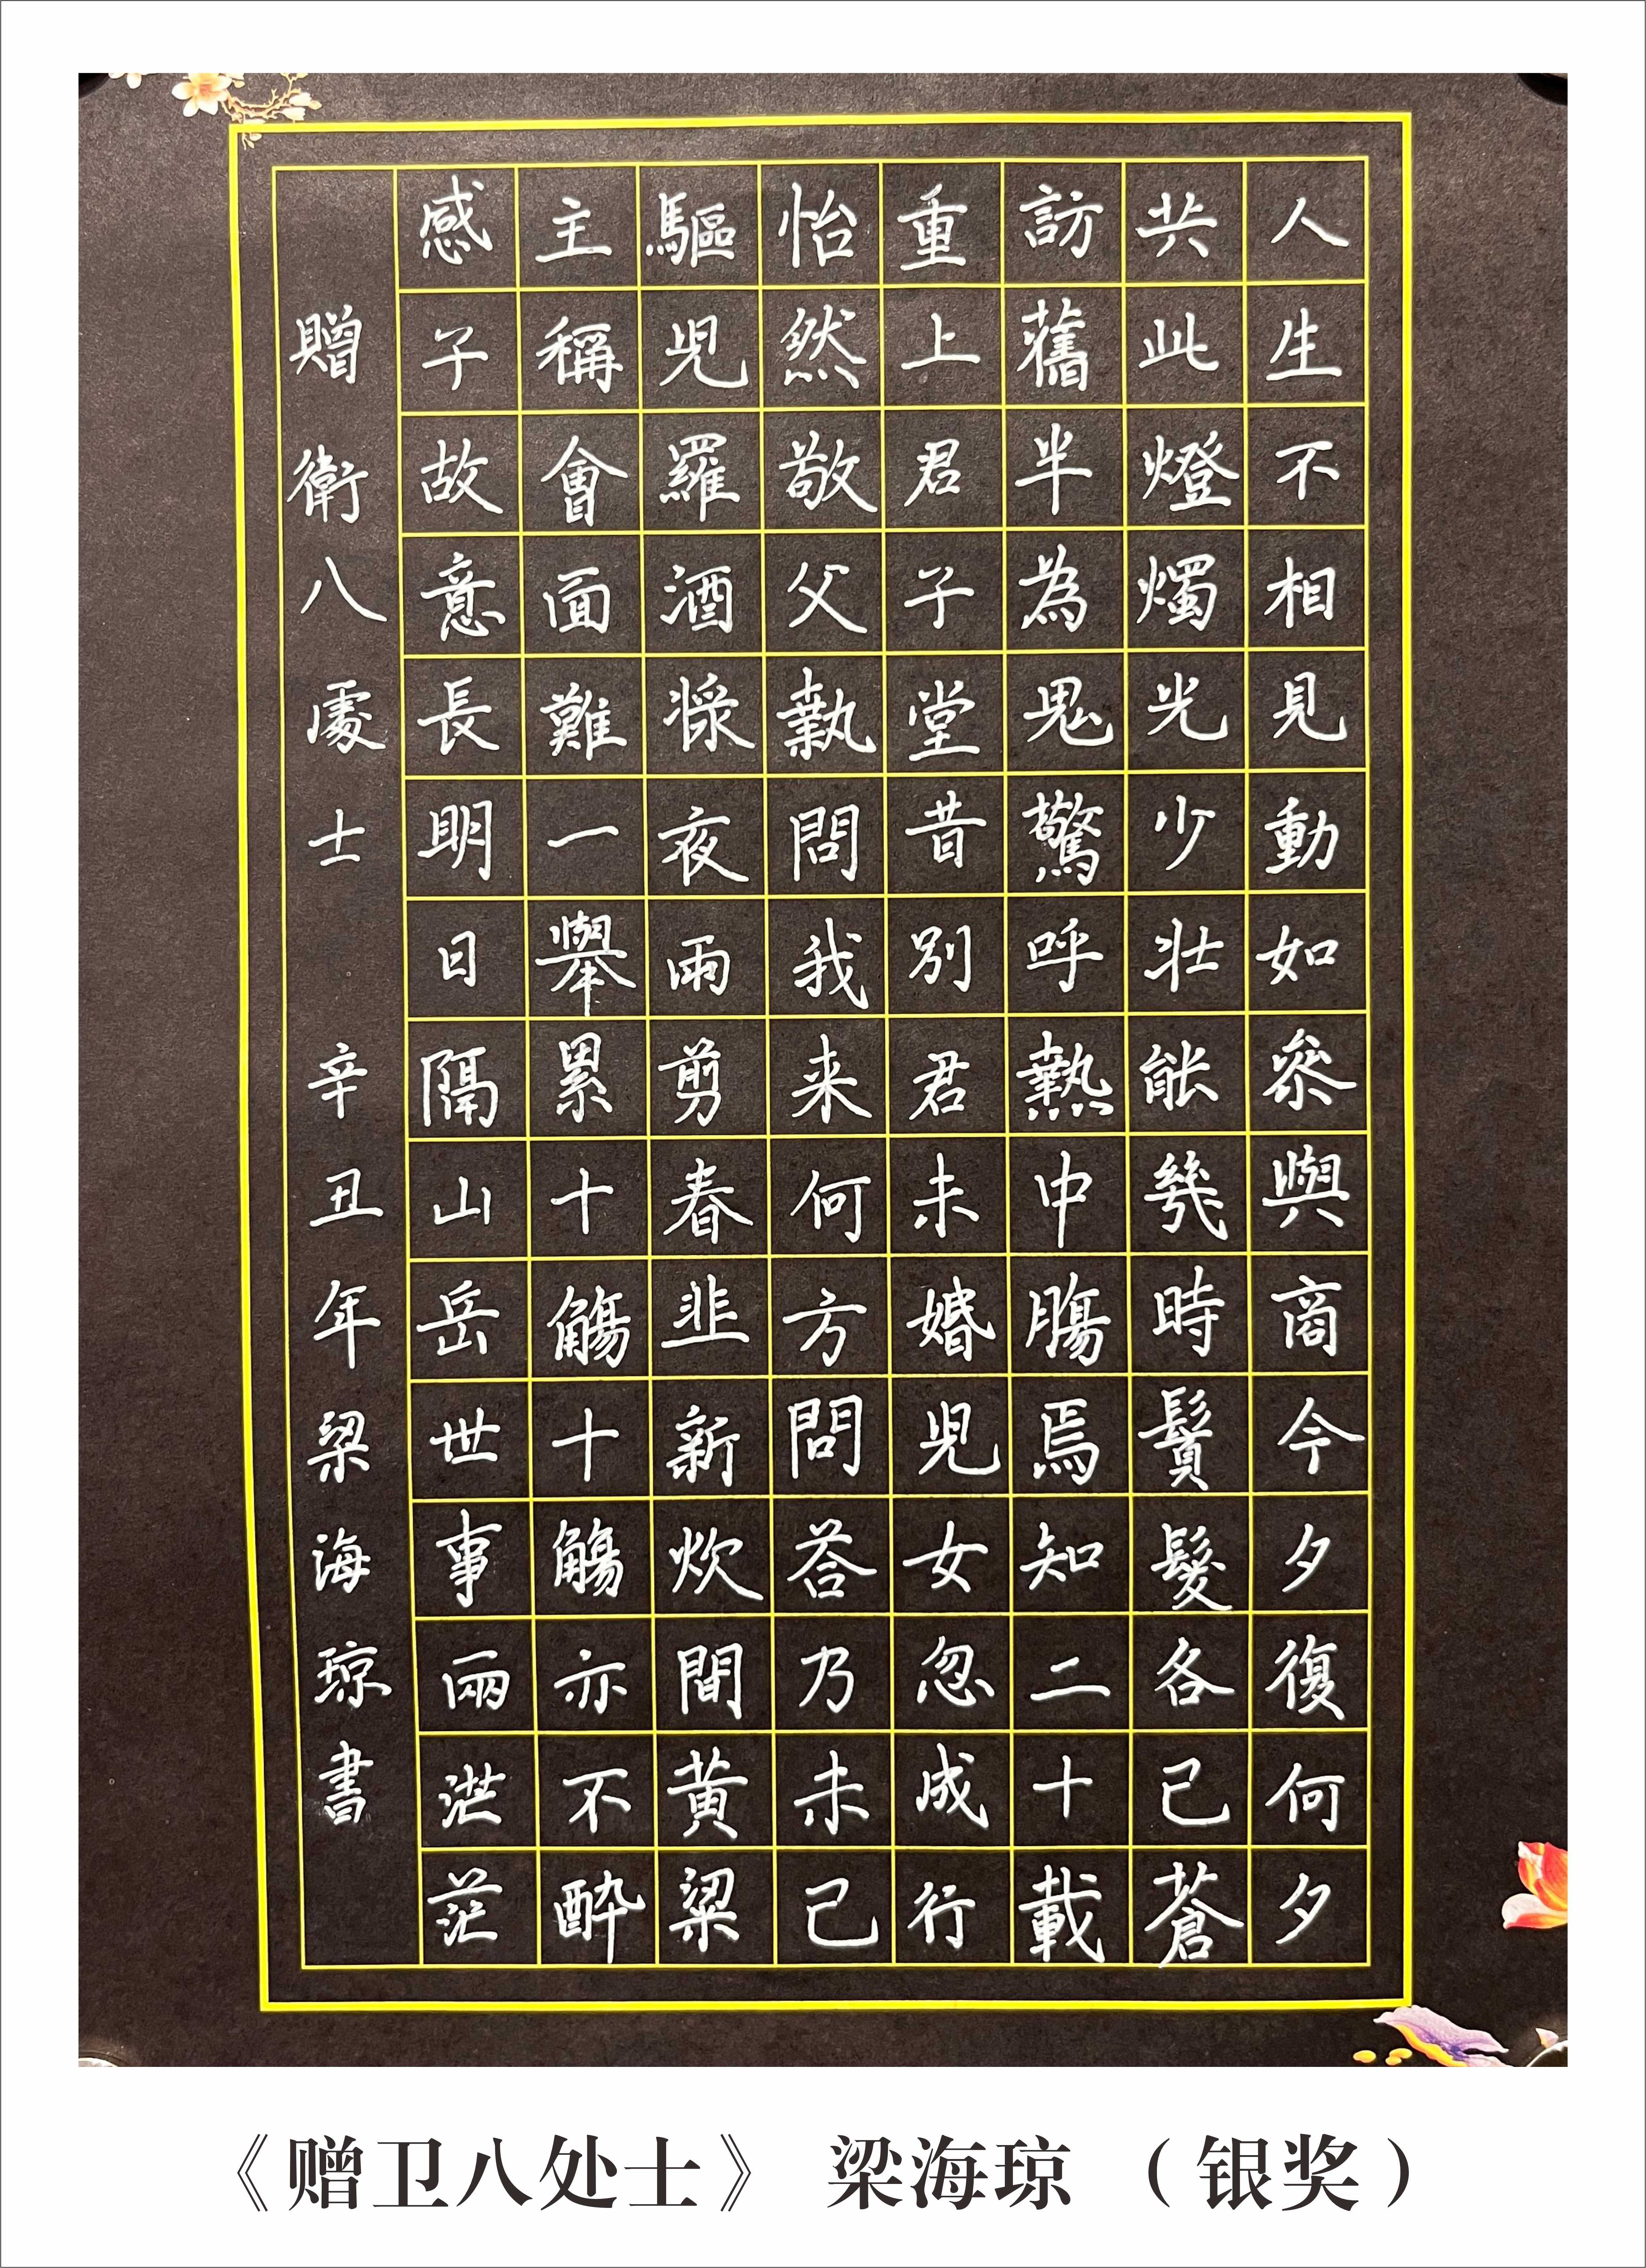 人生不相見動如參與商今夕復何夕
共此燈燭光少壯能幾時鬢髮各已蒼
訪舊半為鬼驚呼熱中腸焉知二十載
重上君子堂昔別君未婚兒女忽成行
怡然敬父執問我来何方問荅乃未已
驅兒羅酒漿夜雨剪春韭新炊間黄粱
主稱會面難一舉累十觴十觴亦不醉
感子故意長明日隔山岳世事兩茫茫
贈衛八處士 辛丑年梁海琼書
《赠卫八处士》 梁海琼 （银奖）